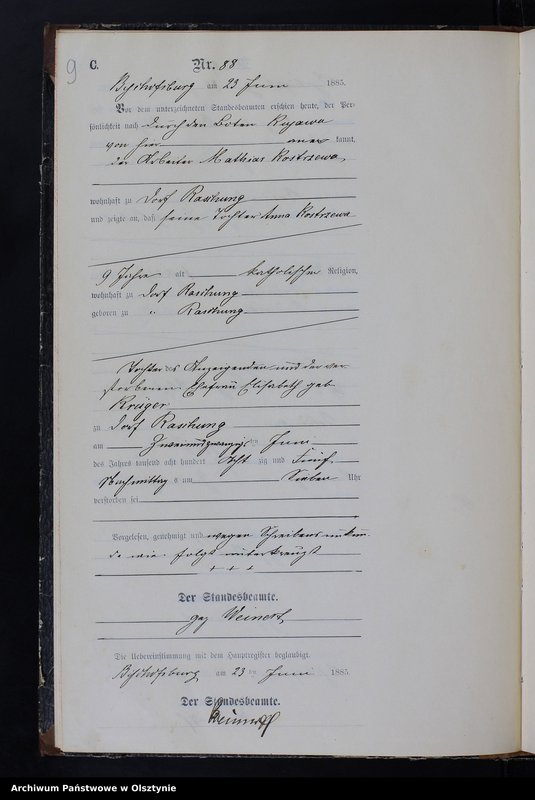 9
C.
Nr. 88
Bischofsburg am 23 Juni 1885.
Vor dem unterzeichneten Standesbeamten erschien heute, der Per-
sönlichkeit nach durch den Boten Kujawa
von hier anerkannt,
der Arbeiter Mathias Kostrzewa
wohnhaft zu Dorf Raschung
und zeigte an, daß seine Tochter Anna Kostrzewa
9 Jahre alt katholischer Religion,
wohnhaft zu Dorf Raschung
geboren zu " Raschung
Tochter des Anzeigenden und der ver-
storbenen Ehefrau Elisabeth geb
Krüger
zu Dorf Raschung
am zweiundzwanzigsten Juni
des Jahres tausend acht hundert achtzig und fünf
Nachmittag s um sieben Uhr
verstorben sei
Vorgelesen, genehmigt und wegen Schreibensunkun-
de wie folgt unterkreuzt
+ + +
Der Standesbeamte.
gez Weinert
Die Uebereinstimmung mit dem Hauptregister beglaubigt
Bischofsburg am 23 ten Juni 1885
Der Standesbeamte.
Weinert
Archiwum Państwowe w Olsztynie